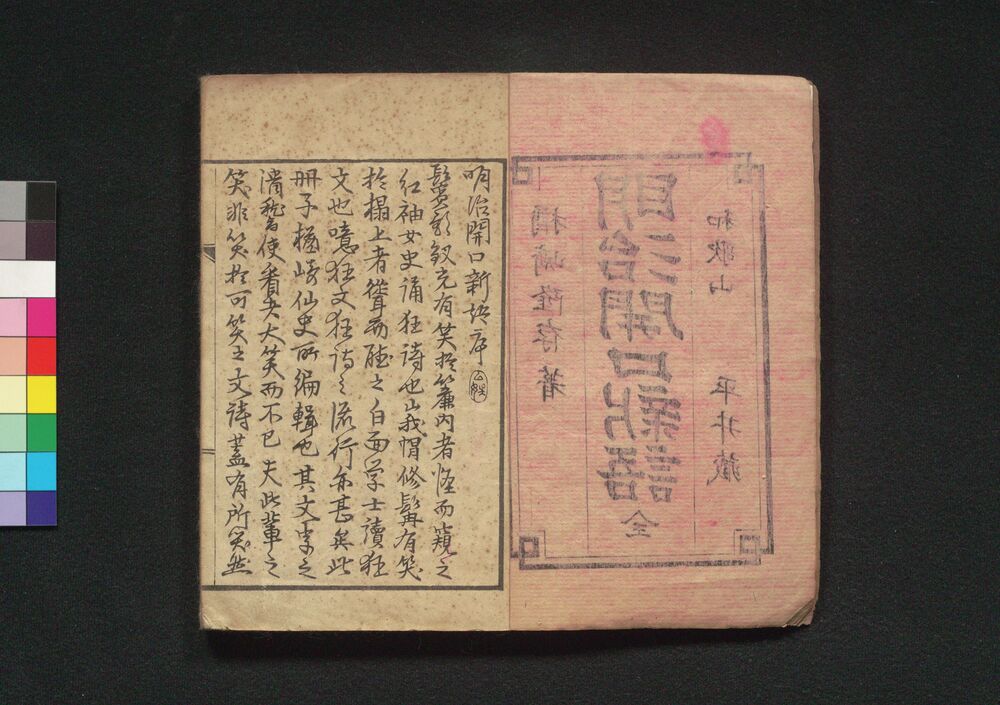 和歌山 平井藏
明治開口新語 全
楢崎隆存著
明治開口新語序
鬢影釵光有笑於簾内者怪而窺之
紅袖女史誦狂詩也峩帽修髯有笑
於榻上者聳而聴之白面学士讀狂
文也噫狂文狂詩之流行亦甚矣此
冊子楢崎仙史所編輯也其文字之
滑稽使看者大笑而不已夫此輩之
笑非笑於可笑之文詩蓋有所笑然